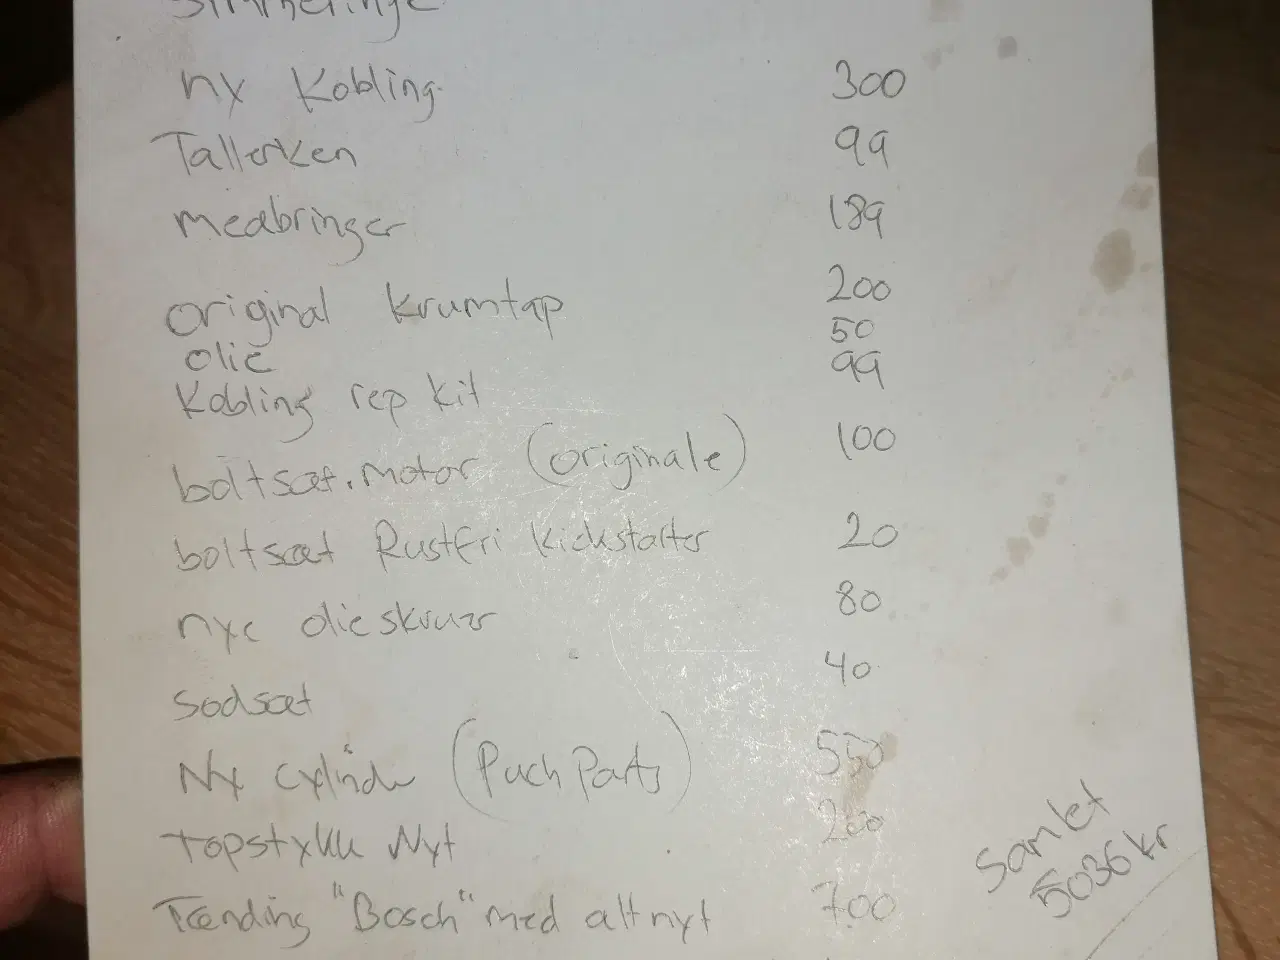 ny Kobling 300
Tallerken 99
medbringer 189
original krumtap 200
olie 50
Kobling rep kit 99
boltsæt. motor (originale) 100
boltsæt Rustfri kickstarter 20
nye olieskruer 80
sodsæt 40
Ny cylinder (Puch Parts) 550
topstykke Nyt 200
Tænding "Bosch" med alt nyt 700
Samlet
5036 kr